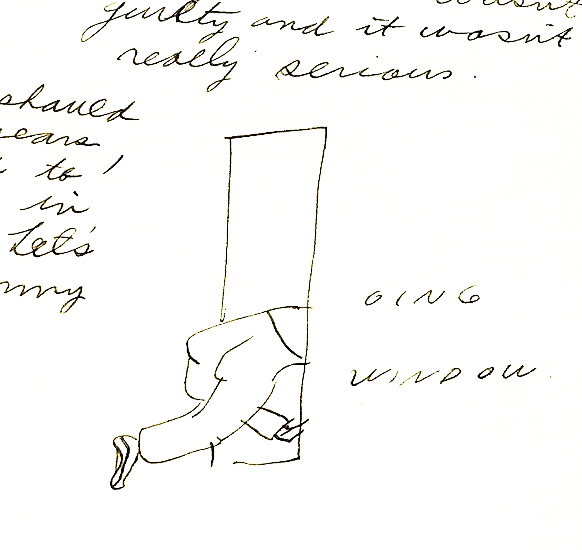 guilty and it wasn't
really serious.
shaved
ears
to
in
Let's
OING
WINDOW.